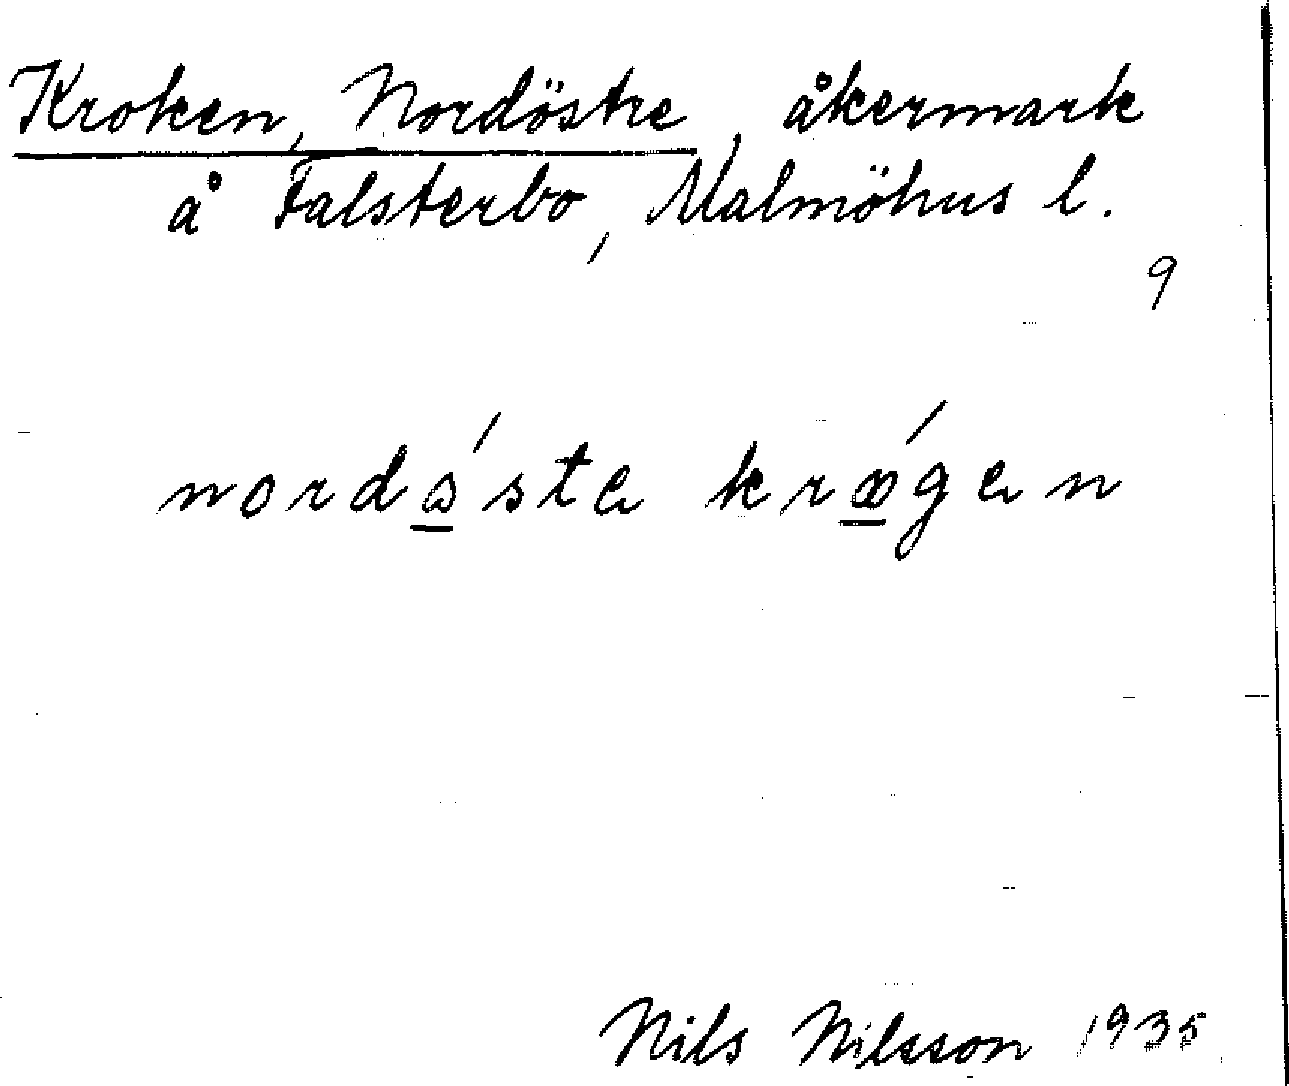 Kroken, Nordöstre, åkermark
å Falsterbo, Malmöhus l.
9
nordǿste krǿgen
Nils Nilsson 1935